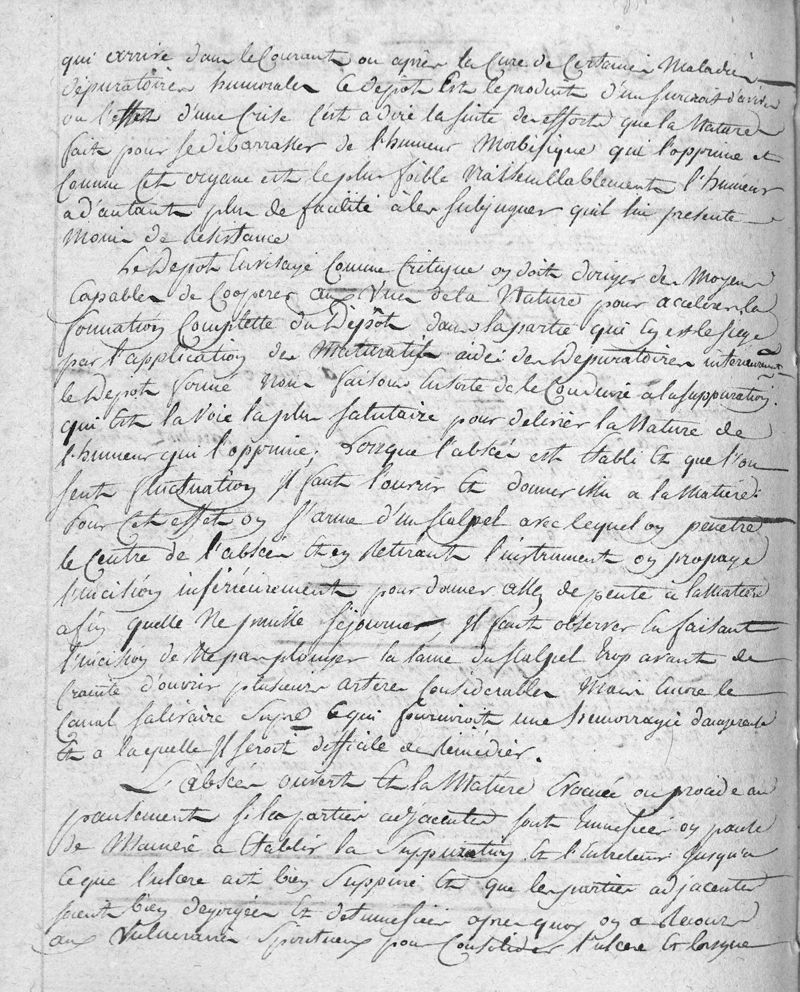 qui arrive dans le Courant ou après la Cure de Certaines Maladies
dépuratoires humorales Ce depot Est le produit d'un surcroit d'avis
ou l'effet d'une Crise C'est a dire la suite des efforts que la Nature
fait pour se débarrasser de l'humeur Morbifique qui l'opprime et
Comme Cet organe est le plus foible Vraissemblablement l'humeur
a d'autant plus de facilité à les subjuguer quil lui presente
Moins de Resistance
Le Depot Envisagé Comme Critique on doit diriger des Moyens
Capables de Cooperer aux Vues de la Nature pour accelerer la
formation Complette du Dépôt dans la partie qui En est le siege
par l'application des Maturatifs aidés des Depuratoires interieurement
le Depot formé Nous faisons Ensorte de le Conduire a la suppuration.
qui Est la Voie la plus salutaire pour delivrer la Nature de
l'humeur qui l'opprime; Lorsque l'abscés est Etabli Et que l'on
sent fluctuation Il faut l'ouvrir Et donner issu a la Matiere
Pour Cet effet on s'arme d'un scalpel avec lequel on penetre
le Centre de l'abscés Et en Retirant l'instrument on propage
l'incision inférieurement pour donner assez de pente a la Matiere
afin quelle Ne puisse séjourner, Il faut observer En faisant
l'incision de Ne pas plonger la lame du scalpel trop avant de
Crainte d'ouvrir plusieurs arteres Considerables Mais Encore le
Canal salivaire Supr Ce qui fourniroit une hemorragie
Et a laquelle Il seroit difficile de Rémédier.
L'abscés ouvert Et la Matiere Evacuée on procede au
pansement si les parties adjacentes sont tumefiées on panse
de Maniere a Etablir la Suppuration Et l'Entretenir Jusqu'a
Ceque l'ulcere ait bien Suppuré Et que les parties adjacentes
soient bien degorgées Et detumefiées apres quoy on a Recours
aux Vulneraires Spiritueux pour Consolider l'ulcere Et lorsque